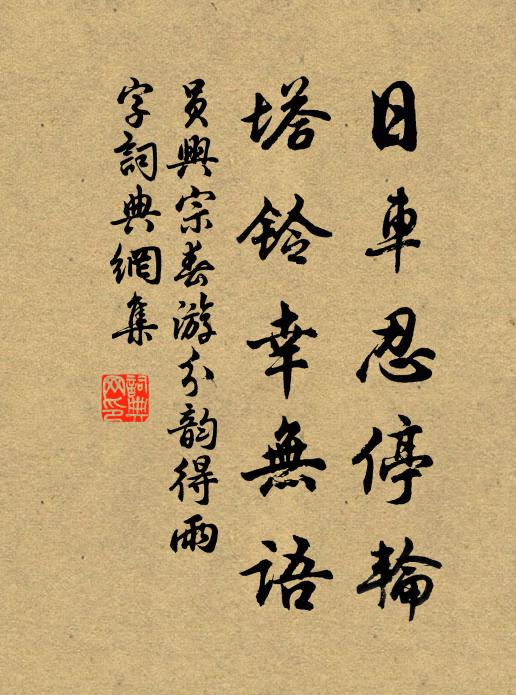 日車忍停輪
塔鈴幸無語
員興宗春游分韵得雨
字詞典網集
詞典网印